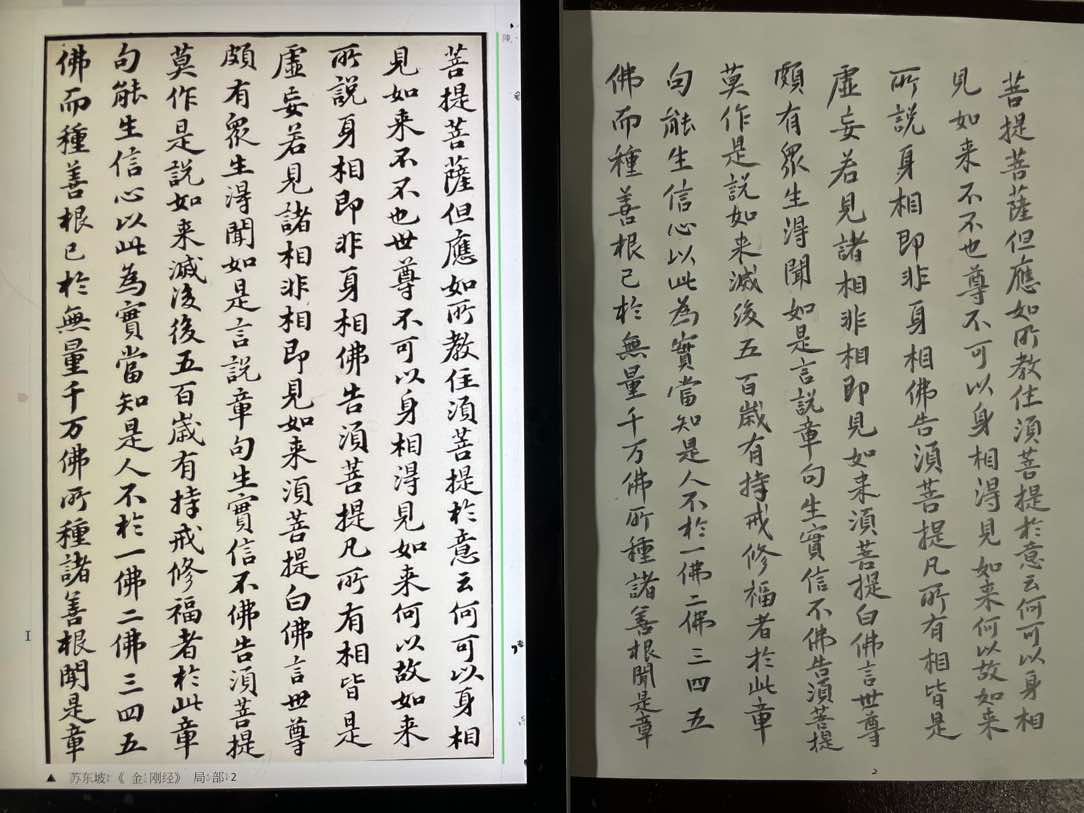 菩提菩薩但應如所教住須菩提於意云何可以身相
見如来不不也世尊不可以身相得見如来何以故如来
所說身相即非身相佛告須菩提凡所有相皆是
虛妄若見諸相非相即見如来須菩提白佛言世尊
頗有衆生得聞如是言說章句生實信不佛告須菩提
莫作是說如来滅後後五百歲有持戒修福者於此章
句能生信心以此為實當知是人不於一佛二佛三四五
佛而種善根已於無量千万佛所種諸善根聞是章
▲ 苏东坡:《金刚经》 局部2
菩提菩薩但應如所教住須菩提於意云何可以身相
見如来不不也尊不可以身相得見如来何以故如来
所說身相即非身相佛告須菩提凡所有相皆是
虛妄若見諸相非相即見如来須菩提白佛言世尊
頗有衆生得聞如是言說章句生實信不佛告須菩提
莫作是說如来滅後五百歲有持戒修福者於此章
句能生信心以此為實當知是人不於一佛二佛三四五
佛而種善根已於無量千万佛所種諸善根聞是章
2